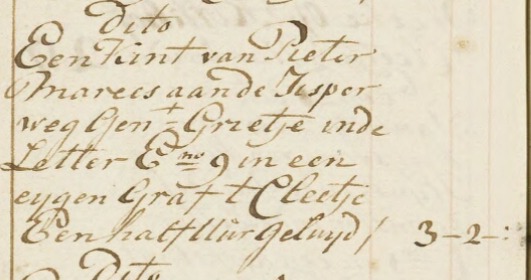 Dito
Een Kint van Pieter
Marees aande Jisper
weg Gent Grietje inde
Letter E no 9 in een
eygen Graf t Cleetje
Een half Uur geluyd / 3-2-:
Dito